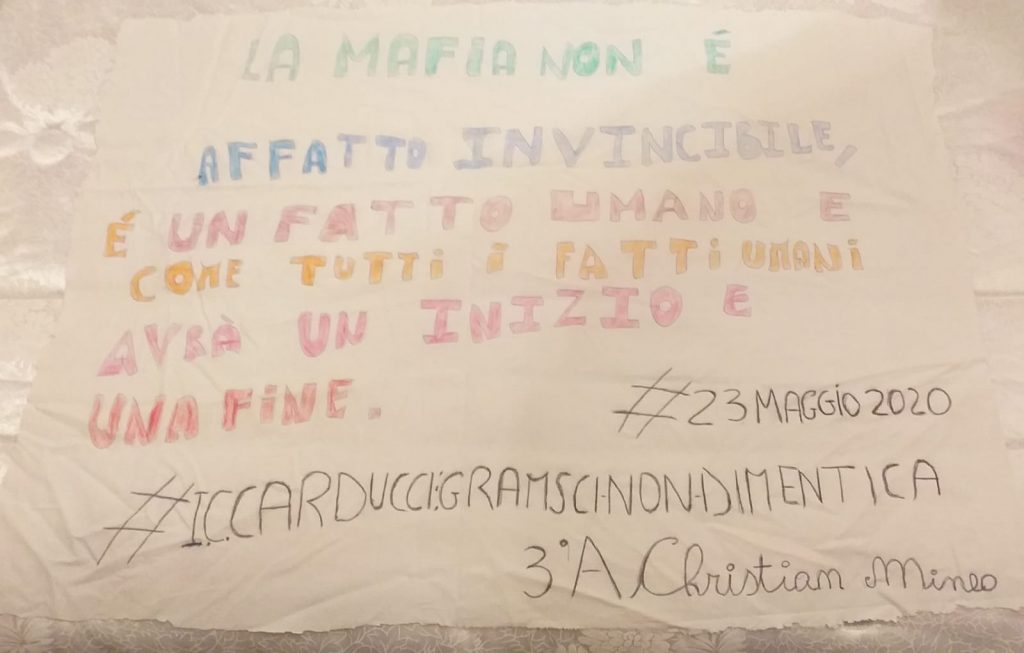 LA MAFIA NON É
AFFATTO INVINCIBILE,
É UN FATTO UMANO E
COME TUTTi i FATTi UMANi
AVRÀ UN INIZIO E
UNA FiNE.
#23 MAGGiO 2020
#I.C.CARDUCCI:GRAMSCI-NON-DIMENTICA
3°A Christian Mineo